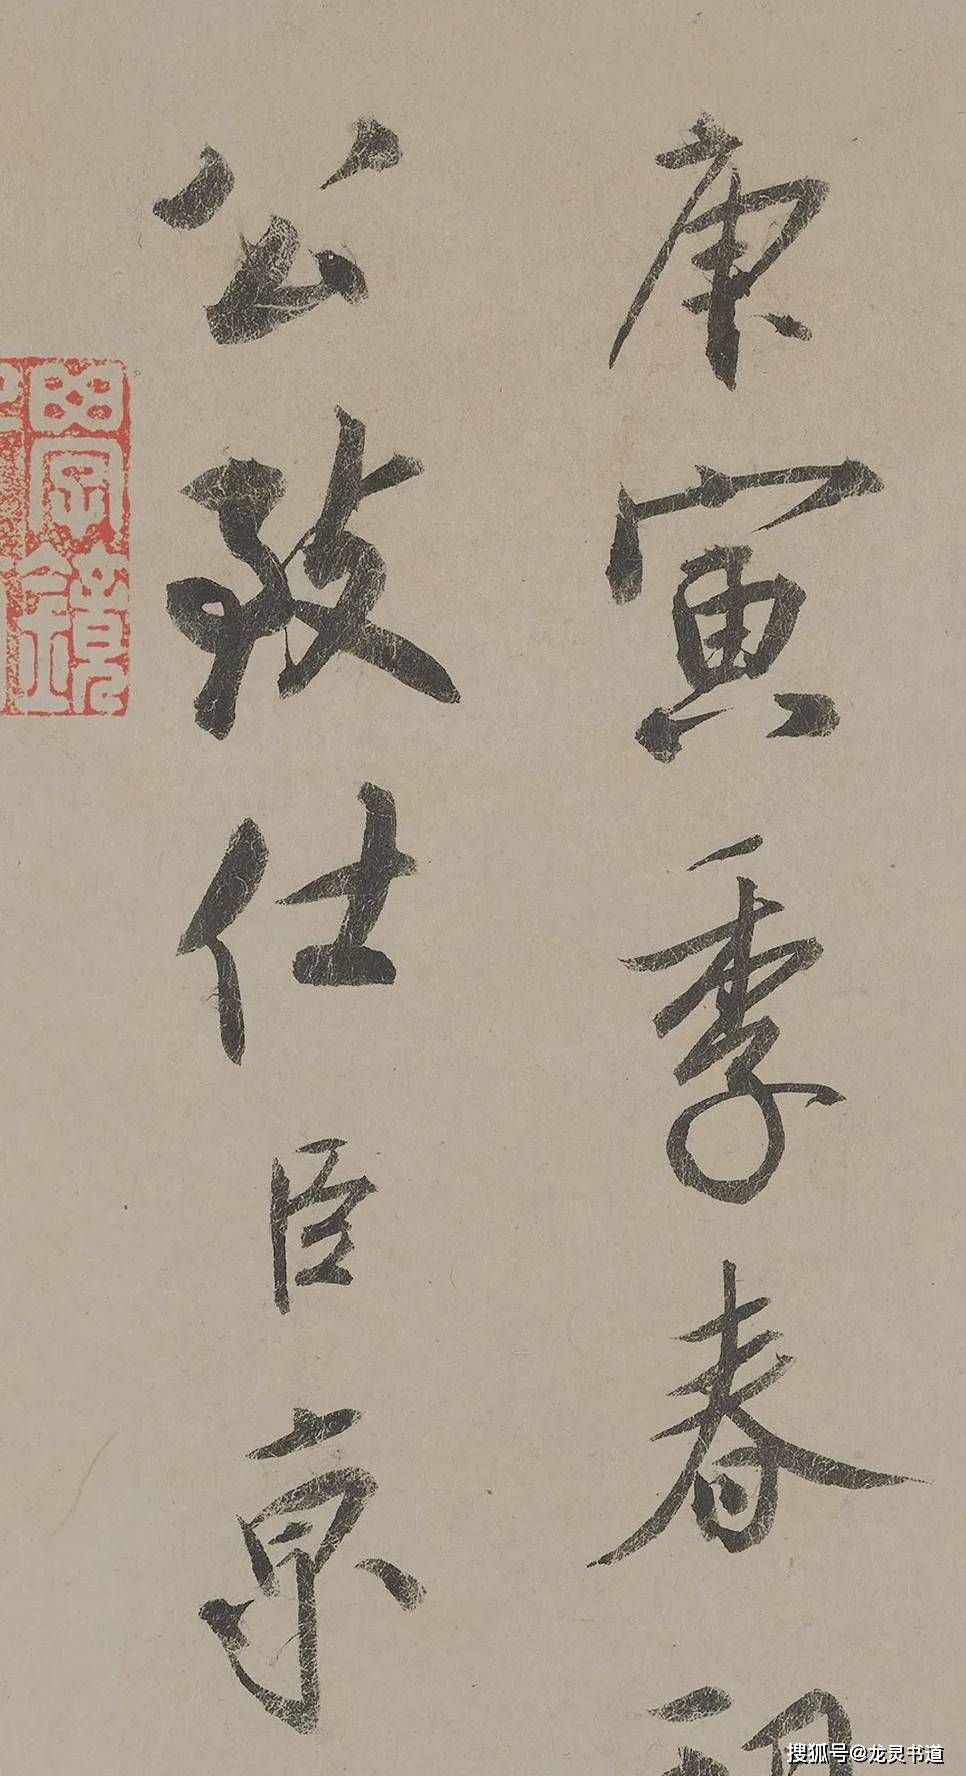 庚寅季春
公致仕臣京
搜狐号@龙灵书道